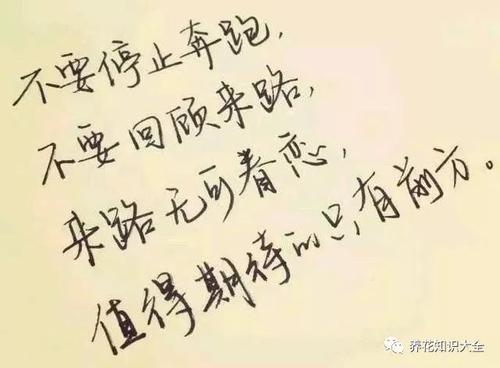 不要停止奔跑,
不要回顾来路,
来路无可眷恋,
值得期待的只有前方。
养花知识大全